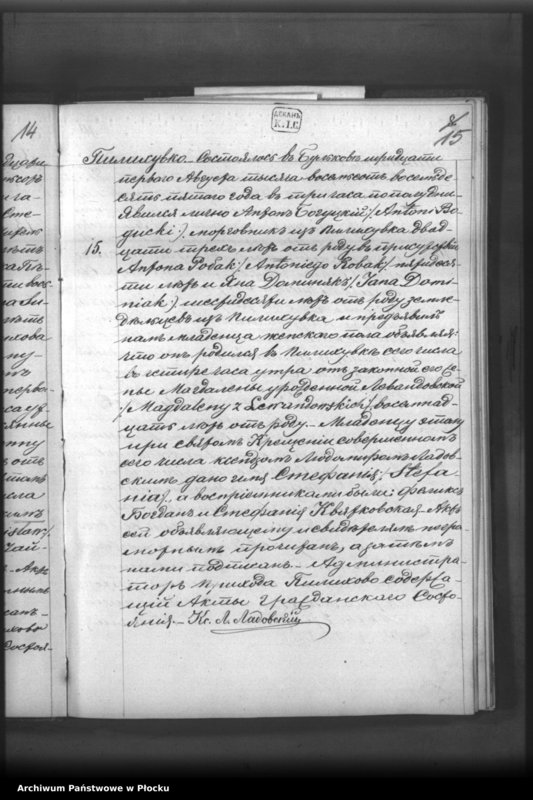 14
15
ДЕКАНЪ
К.І.С.
Пилихувко. Состоялось въ Бульковѣ тридцати
перваго Августа тысяча восемьсотъ восемьде
сятъ пятаго года въ три часа по полудни
Явился лично Антонъ Богуцкій /: Antoni Bo-
gucki :/ морговникъ изъ Пилихувка двад-
15. цати трехъ лѣтъ отъ роду въ присутствіи
Антона Робакъ /: Antoniego Robak :/ пятидеся-
ти лѣтъ и Яна Доминякъ /: Jana Domi-
niak :/ шестидесяти лѣтъ отъ роду земле-
дѣльцевъ изъ Пилихувка и предъявилъ
намъ младенца женскаго пола объявляя:
что онъ родился въ Пилихувкѣ сего числа
въ четыре часа утра отъ законной его же-
ны Магдалены урожденной Левандовской
/: Magdaleny z Lewandowskich :/ восемнад-
цать лѣтъ отъ роду. Младенцу этому
при святомъ Крещеніи совершенномъ
сего числа ксендзомъ Ладов-
скимъ дано имя Стефанія /: Stefa-
nia :/, а воспріемниками были: Феликсъ
Богданъ и Стефанія Квятковская. Актъ
сей объявляющему и свидѣтелямъ негра-
мотнымъ прочитанъ, а затѣмъ
нами подписанъ. Администра-
торъ прихода Пилихово содержа-
щій Акты Гражданскаго Состо-
янія. Кс. Л. Ладовскій
Archiwum Państwowe w Płocku